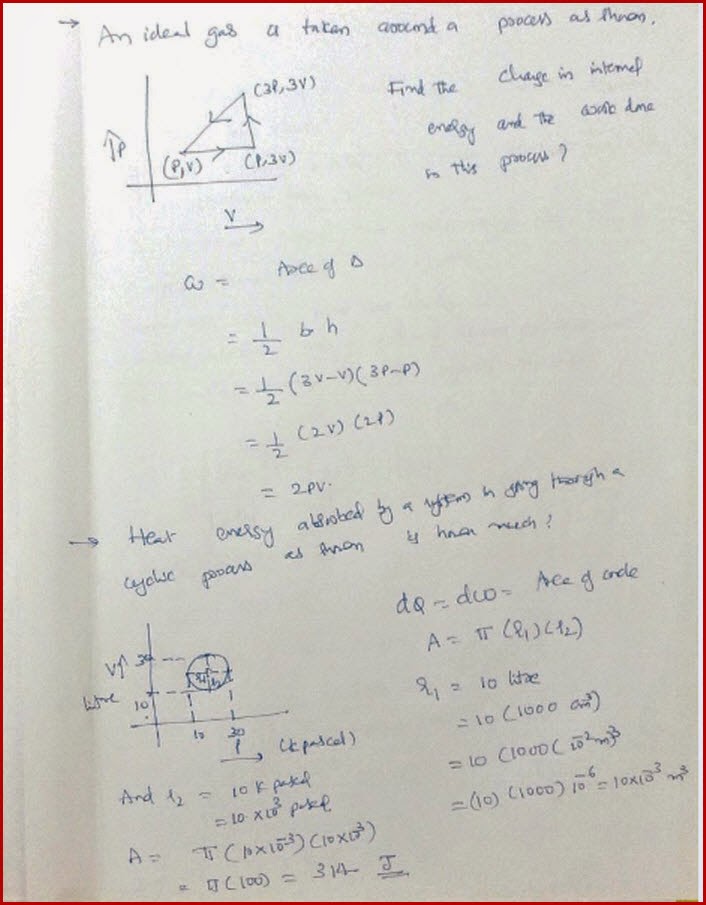 → An ideal gas is taken around a process as shown.
Find the change in internal
energy and the work done
in this process?
↑P
(3P, 3V)
(P,V)
(P,3V)
V
→
ω = Area of Δ
= 1/2 b h
= 1/2 (3V-V)(3P-P)
= 1/2 (2V) (2P)
= 2PV.
→ Heat energy absorbed by a system in going through a
cyclic process as shown is how much?
V↑ 30
litre
10
r1 r2
10 30
P → (k pascal)
dQ = dω = Area of circle
A = π (r1) (r2)
r1 = 10 litre
= 10 (1000 cm³)
= 10 (1000 (10⁻² m)³
= (10) (1000) 10⁻⁶ = 10×10⁻³ m³
And r2 = 10 k pascal
= 10 × 10³ pascal
A = π (10×10⁻³) (10×10³)
= π (100) = 314 J